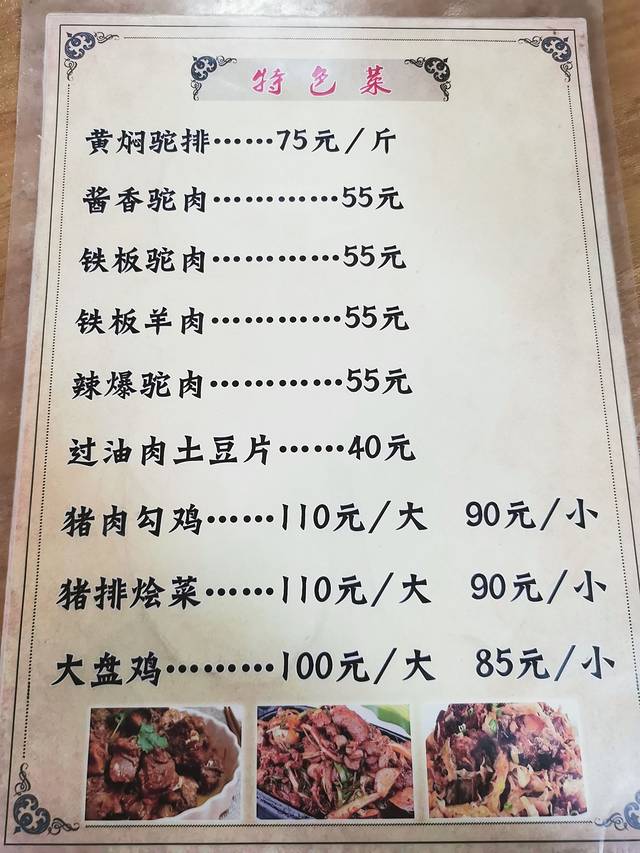 特色菜
黄焖驼排……75元/斤
酱香驼肉…………55元
铁板驼肉…………55元
铁板羊肉…………55元
辣爆驼肉…………55元
过油肉土豆片……40元
猪肉勾鸡……110元/大 90元/小
猪排烩菜……110元/大 90元/小
大盘鸡………100元/大 85元/小